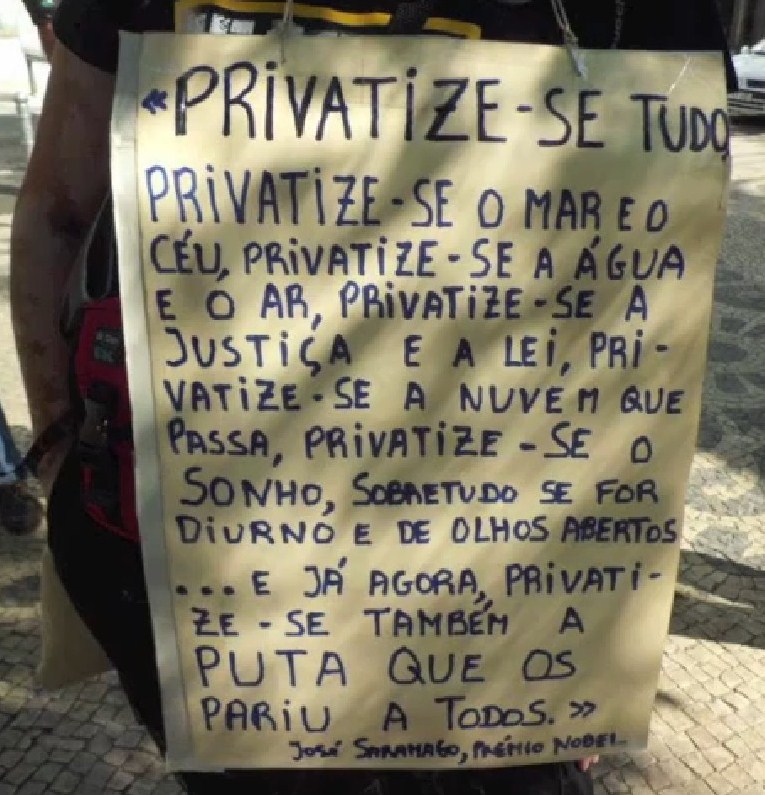 «PRIVATIZE-SE TUDO,
PRIVATIZE-SE O MAR E O
CÉU, PRIVATIZE-SE A ÁGUA
E O AR, PRIVATIZE-SE A
JUSTIÇA E A LEI, PRI-
VATIZE-SE A NUVEM QUE
PASSA, PRIVATIZE-SE O
SONHO, SOBRETUDO SE FOR
DIURNO E DE OLHOS ABERTOS
... E JÁ AGORA, PRIVATI-
ZE-SE TAMBÉM A
PUTA QUE OS
PARIU A TODOS.»
JOSÉ SARAMAGO, PRÉMIO NOBEL